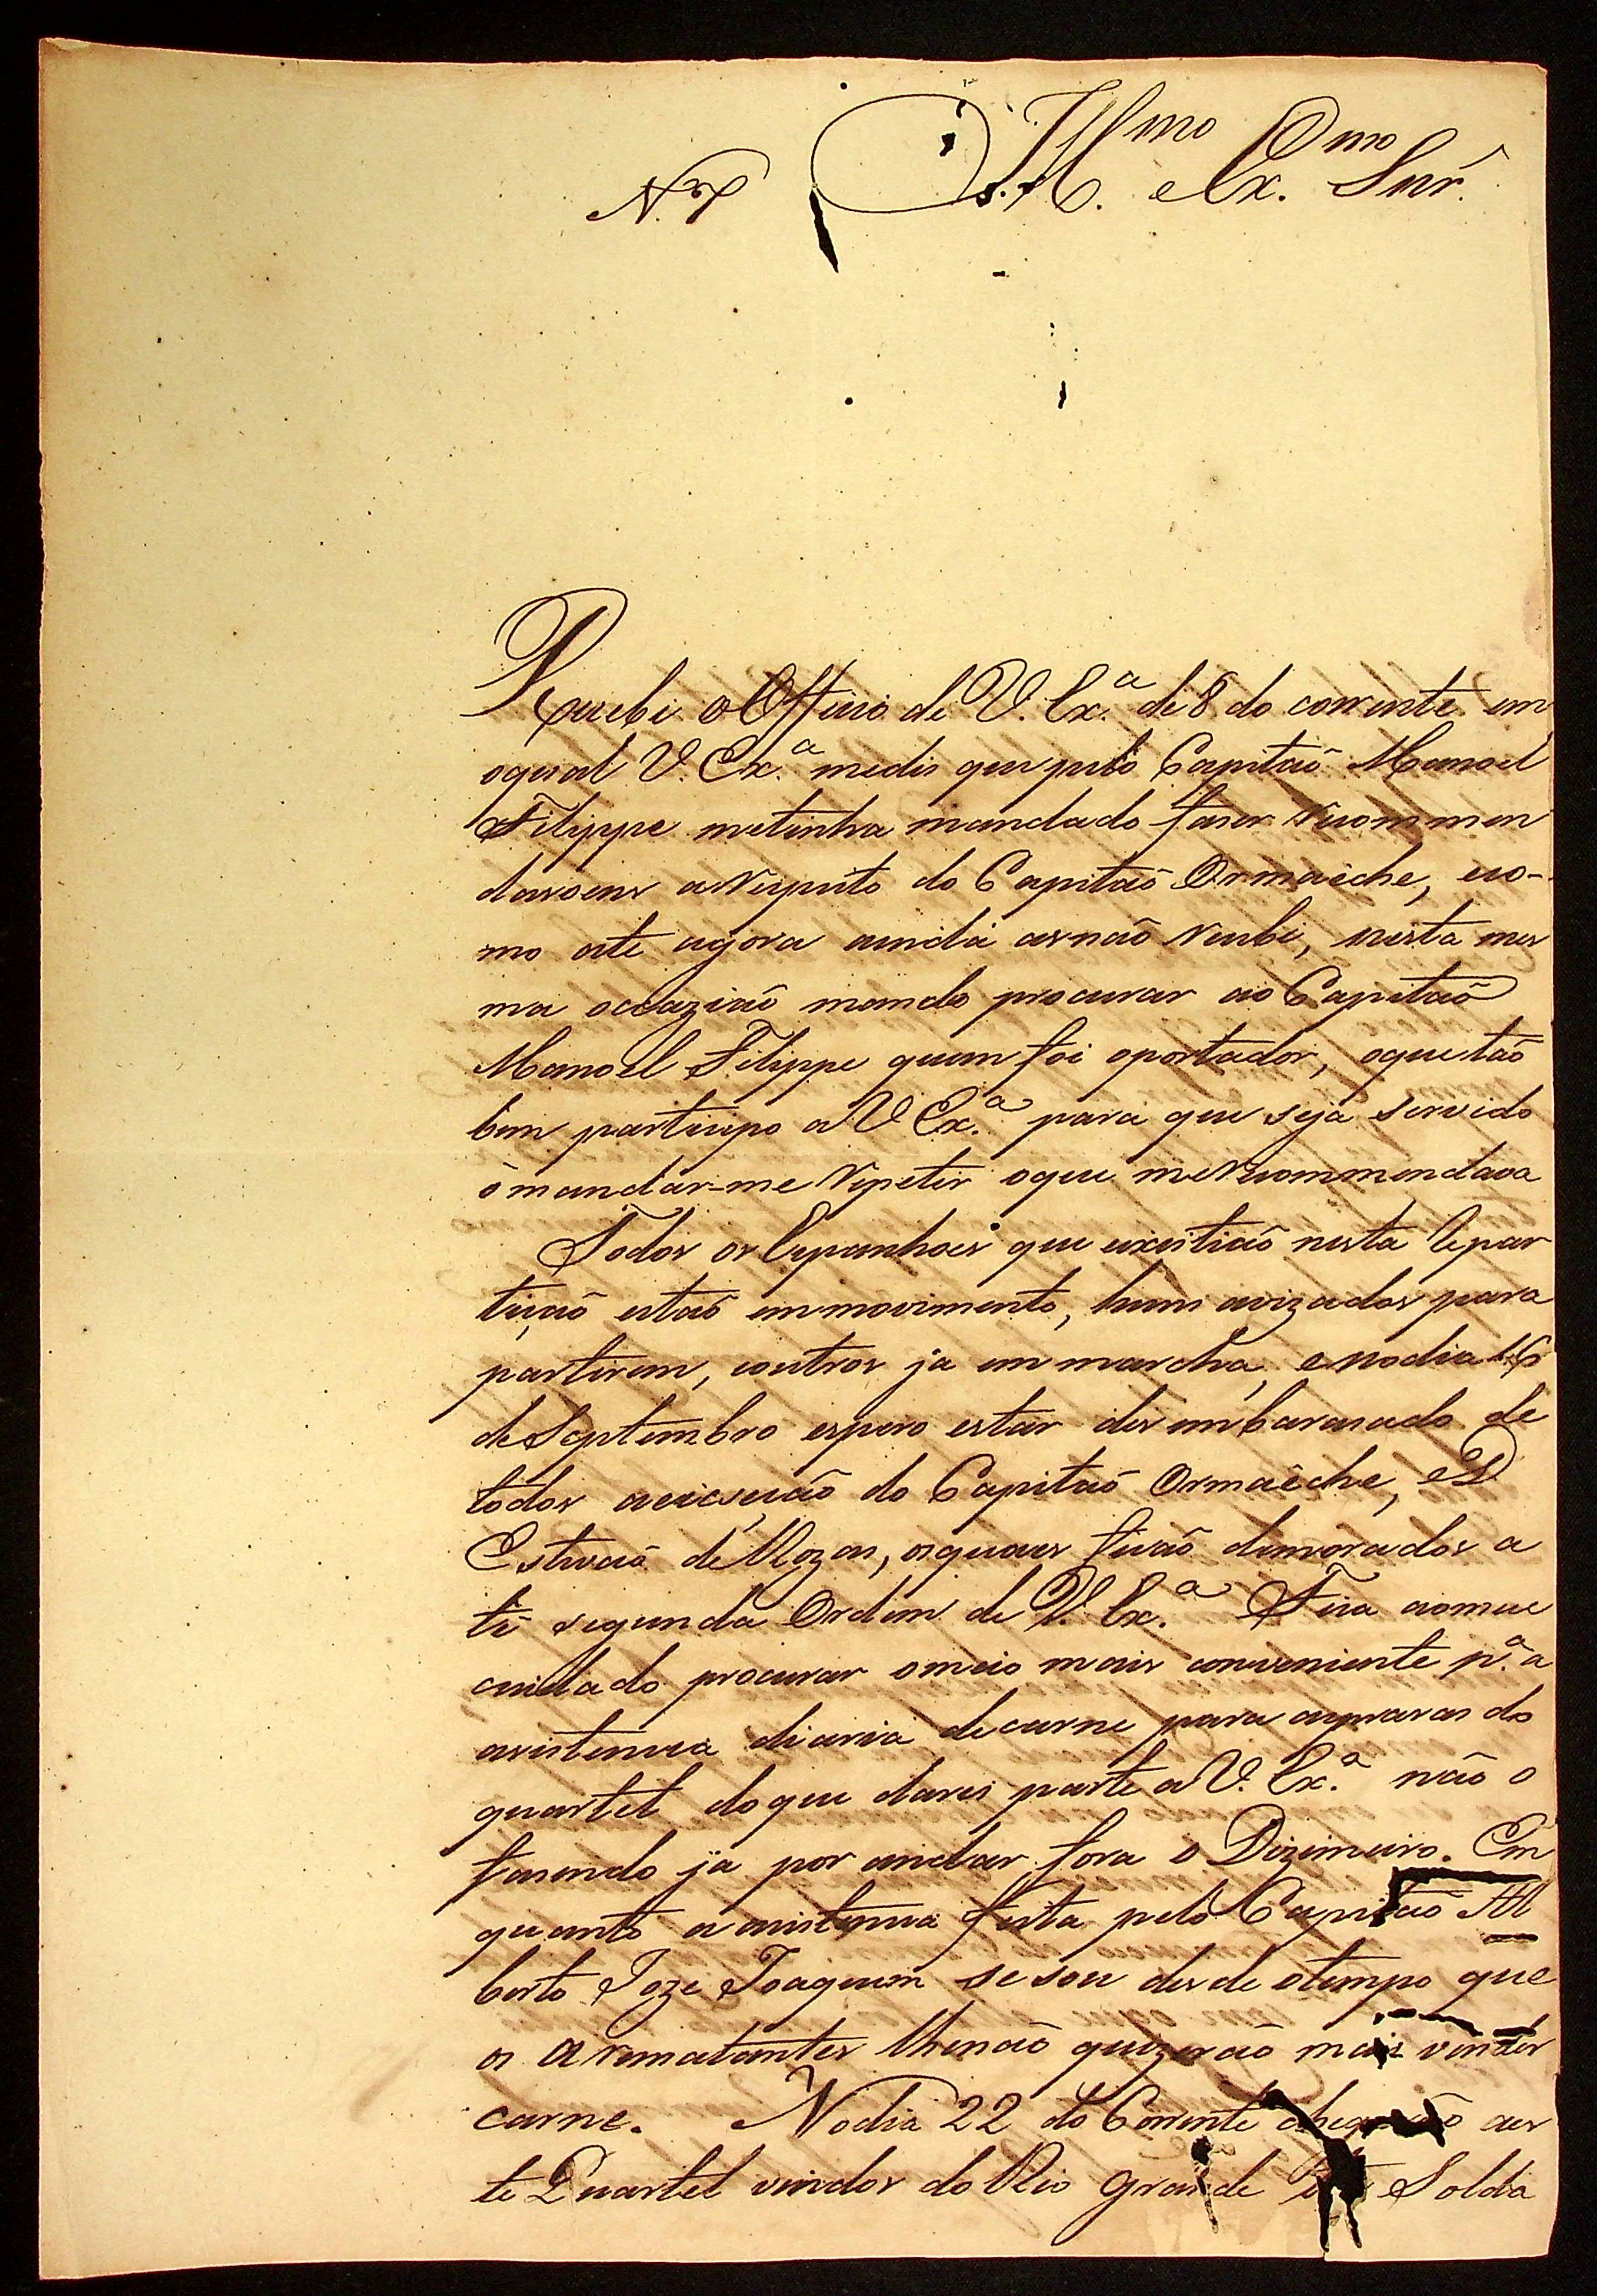 N. 7 Ill.mo e Ex.mo Snr.
Recebi o Officio de V. Ex.a de 8 do corrente em
oqual V. Ex.a medis que pelo Capitaõ Manoel
Filippe metinha mandado faser recommen
dasoens arespeito do Capitaõ Ormaêche, eco-
mo ate agora ainda asnaõ recebi, nesta mes
ma occaziaõ mando procurar ao Capitaõ
Manoel Filippe quem foi oportador, oque tão
bem participo a V Ex.a para que seja servido
ò mandar-me repetir oque merecommendava
Todos os Espanhoes que existiaõ nesta Repar
tiçaõ estaõ emmovimento, huns avizados para
partirem, eoutros ja em marcha, enodia 16
de Septembro espero estar desembarasado de
todos aeicsesaõ do Capitaõ Ormaêche, e D.
Estevaõ de Rozas, osquaes ficaõ demorados a
tê segunda Ordem de V. Ex.a Fica aomeu
cuidado procurar omeio mais conveniente p.a a
asistencia diaria decarne para aspraças do
quartel doque darei parte a V. Ex.a não o
fasendo ja por andar fora o Dizimeiro. Em
quanto a asistencia feita pelo Capitaõ Al
berto Joze Joaquim sesou desde otempo que
os Arematantes lhenaõ quizeraõ mais vender
carne. Nodia 22 do Corrente chegaraõ aes
te Quartel vindos do Rio Grande Soldà